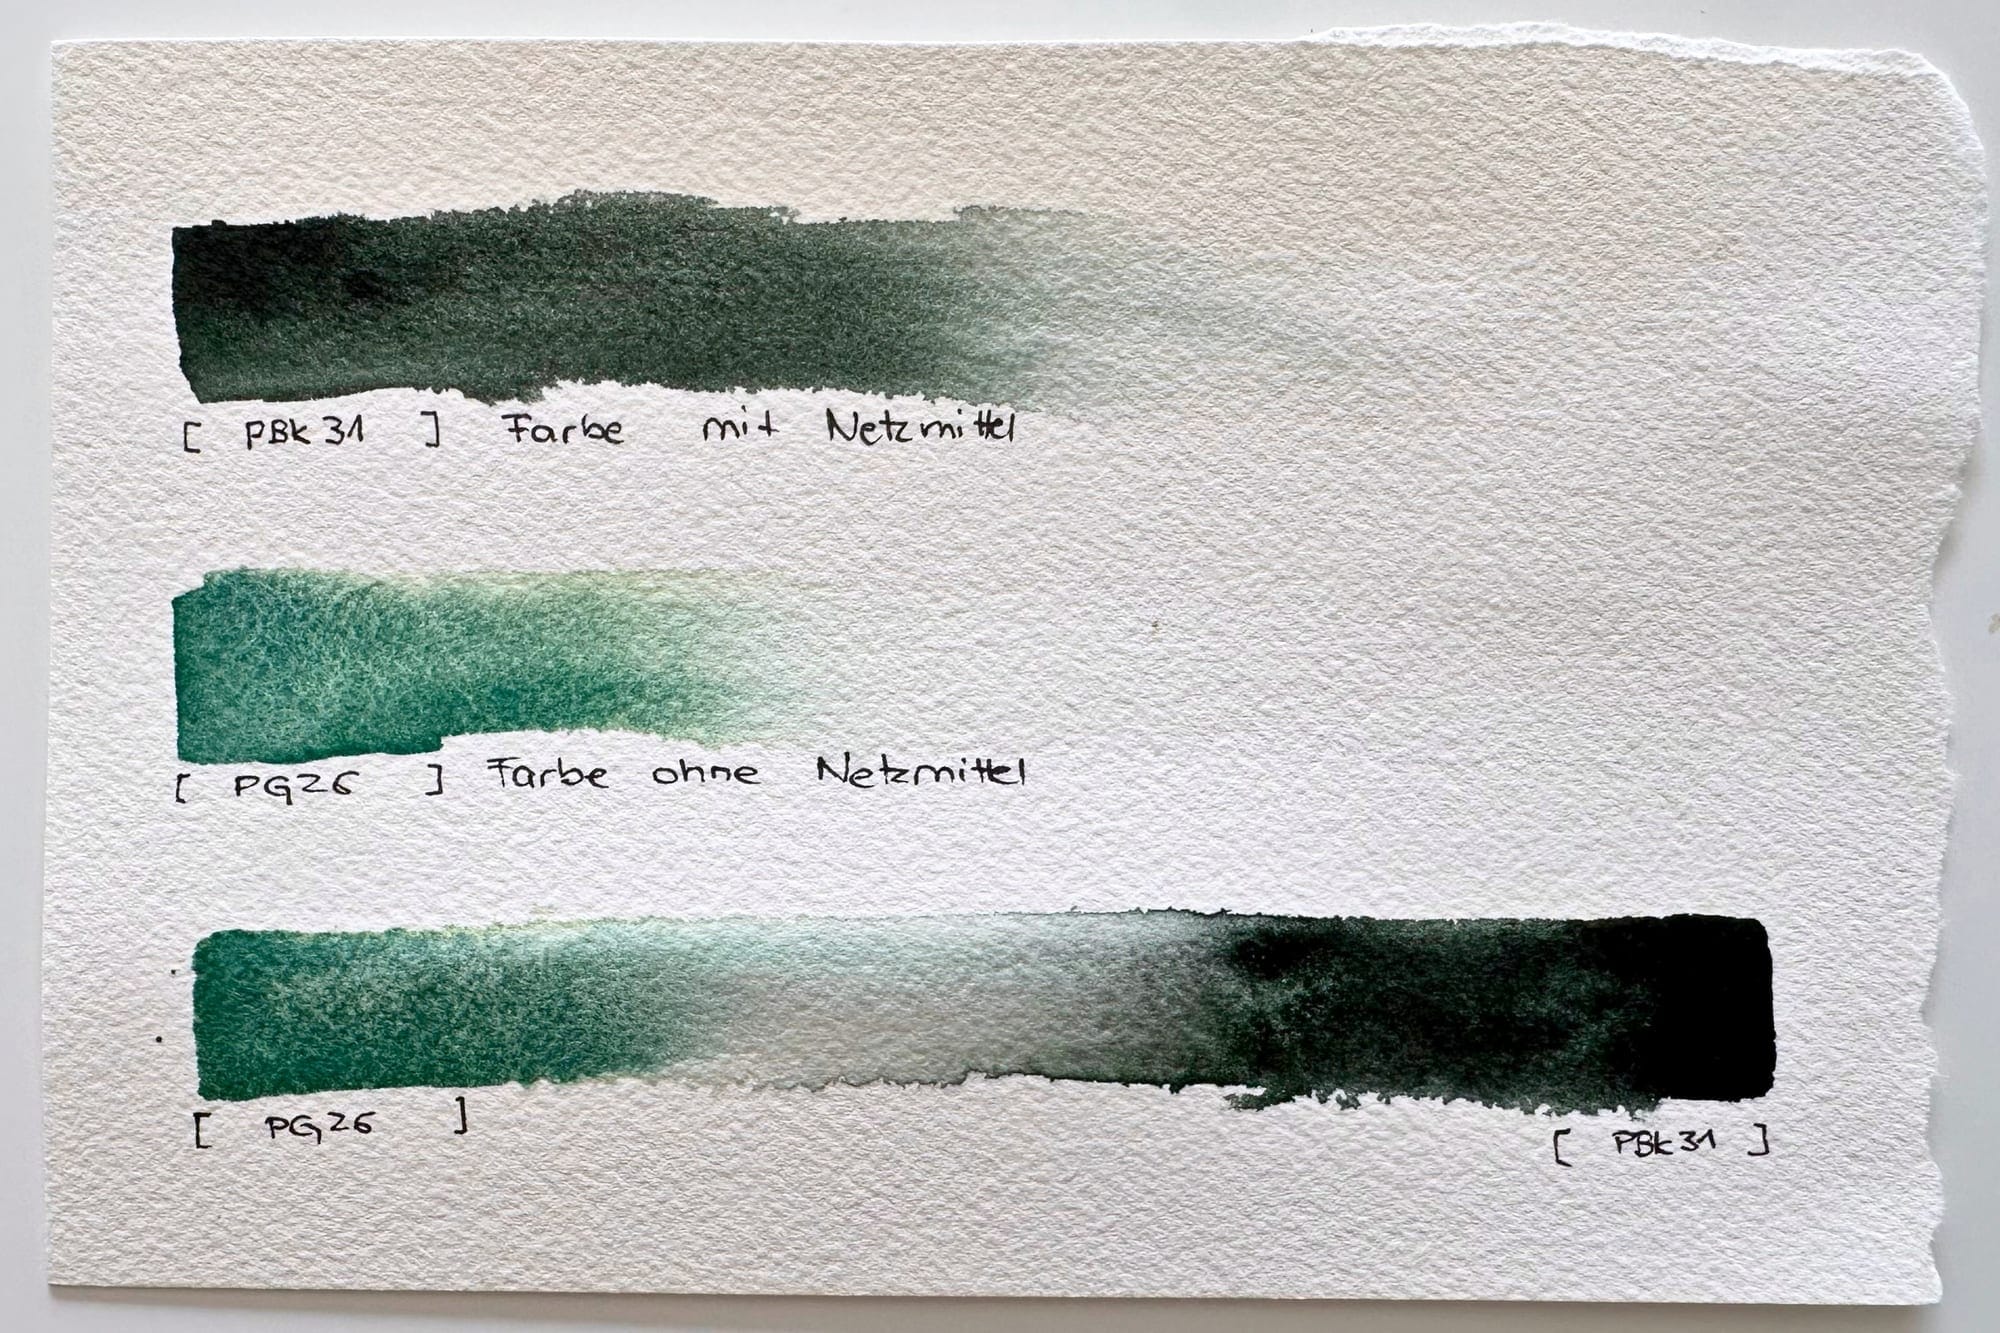 [ PBk31 ] Farbe mit Netzmittel
[ PG26 ] Farbe ohne Netzmittel
[ PG26 ] [ PBk31 ]